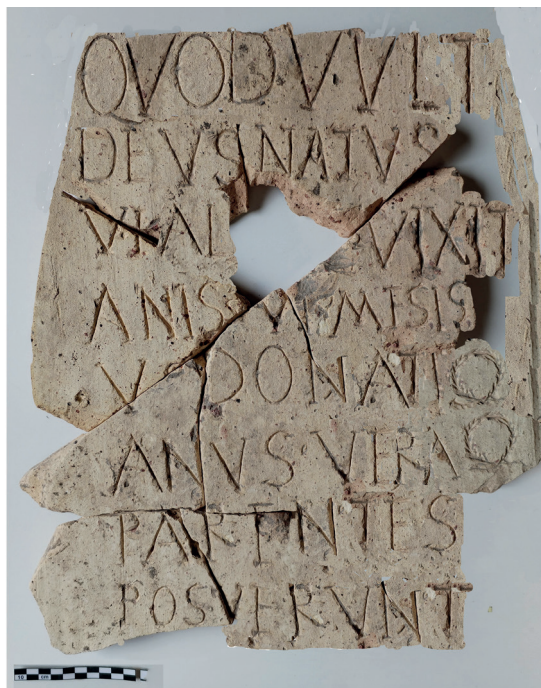 QVODVVLT
DEVSNATVS
VIXIT
ANIS V MISIS
V DONATI
ANVS VERA
PARENTES
POSVERVNT
10 cm